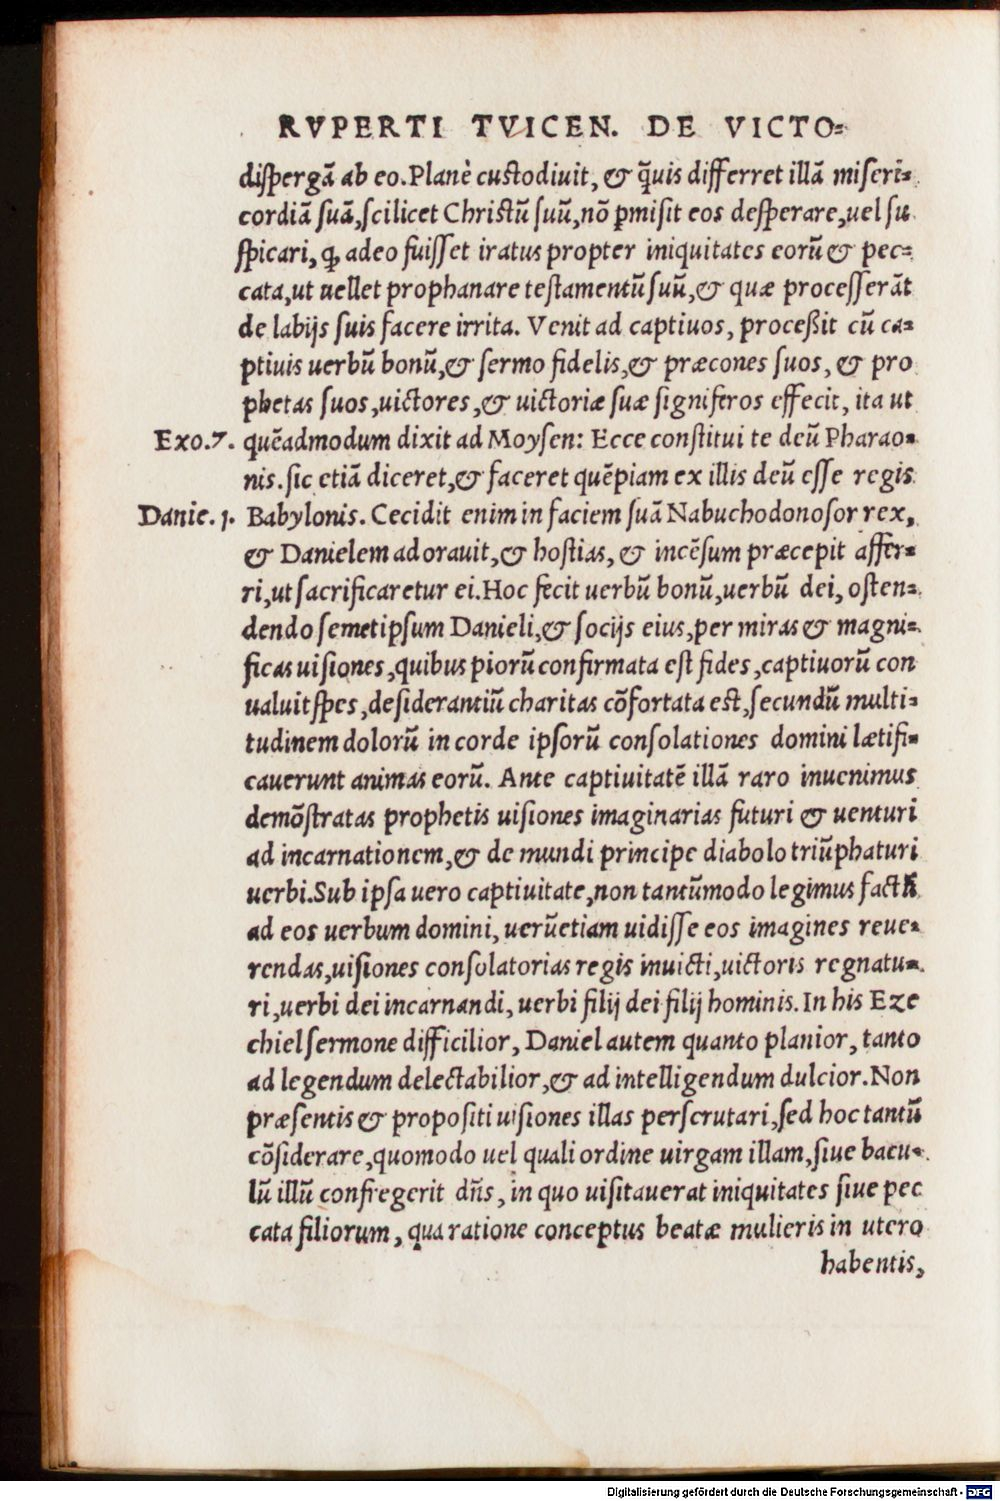 RVPERTI TVICEN. DE VICTO=
dispergā ab eo. Planè custodiuit, & q̃uis differret illā miseri=
cordiā suā, scilicet Christū suū, nō ꝑmisit eos desperare, uel su
spicari, ꝙ adeo fuisset iratus propter iniquitates eorū & pec=
cata, ut uellet prophanare testamentū suū, & quæ processerāt
de labijs suis facere irrita. Venit ad captiuos, proceßit cū ca=
ptiuis uerbū bonū, & sermo fidelis, & præcones suos, & pro
phetas suos, uictores, & uictoriæ suæ signiferos effecit, ita ut
Exo.7. quēadmodum dixit ad Moysen: Ecce constitui te deū Pharao=
nis. sic etiā diceret, & faceret quēpiam ex illis deū esse regis
Danie.1. Babylonis. Cecidit enim in faciem suā Nabuchodonosor rex,
& Danielem adorauit, & hostias, & incēsum præcepit affer=
ri, ut sacrificaretur ei. Hoc fecit uerbū bonū, uerbū dei, osten=
dendo semetipsum Danieli, & socijs eius, per miras & magni=
ficas uisiones, quibus piorū confirmata est fides, captiuorū con
ualuit spes, desiderantiū charitas cōfortata est, secundū multi=
tudinem dolorū in corde ipsorū consolationes domini lætifi=
cauerunt animas eorū. Ante captiuitatē illā raro inuenimus
demōstratas prophetis uisiones imaginarias futuri & uenturi
ad incarnationem, & de mundi principe diabolo triūphaturi
uerbi. Sub ipsa uero captiuitate, non tantūmodo legimus factū
ad eos uerbum domini, uerūetiam uidisse eos imagines reue=
rendas, uisiones consolatorias regis inuicti, uictoris regnatu=
ri, uerbi dei incarnandi, uerbi filij dei filij hominis. In his Eze
chiel sermone difficilior, Daniel autem quanto planior, tanto
ad legendum delectabilior, & ad intelligendum dulcior. Non
præsentis & propositi uisiones illas perscrutari, sed hoc tantū
cōsiderare, quomodo uel quali ordine uirgam illam, siue bacu=
lū illū confregerit dñs, in quo uisitauerat iniquitates siue pec
cata filiorum, qua ratione conceptus beatæ mulieris in utero
habentis,
Digitalisierung gefördert durch die Deutsche Forschungsgemeinschaft - DFG